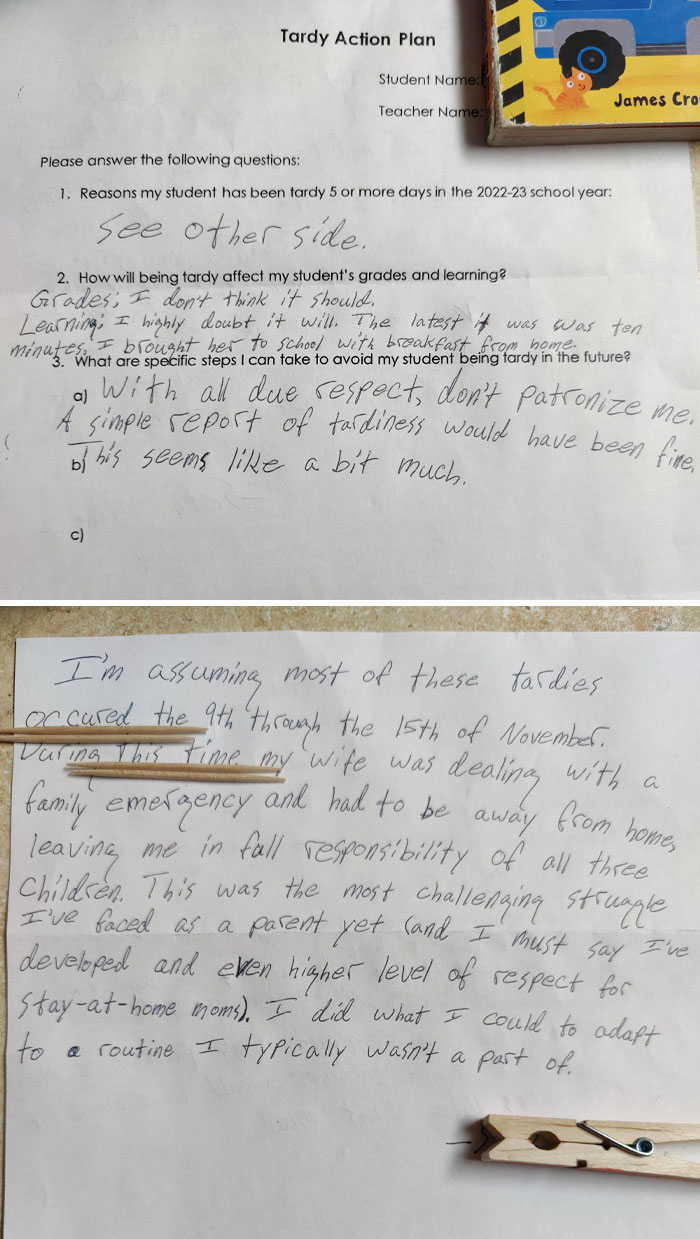 Tardy Action Plan
Student Name:
James Cro
Teacher Name:
Please answer the following questions:
1. Reasons my student has been tardy 5 or more days in the 2022-23 school year:
See other side.
2. How will being tardy affect my student's grades and learning?
Grades; I don't think it should.
Learning; I highly doubt it will. The latest it was was ten
minutes, I brought her to school with breakfast from home.
3. What are specific steps I can take to avoid my student being tardy in the future?
a) With all due respect, don't patronize me.
A simple report of tardiness would have been fine.
b) This seems like a bit much.
c)
I'm assuming most of these tardies
occured the 9th through the 15th of November.
During This time my wife was dealing with a
family emergency and had to be away from home,
leaving me in full responsibility of all three
Children. This was the most challenging struggle
I've faced as a parent yet (and I must say I've
developed and even higher level of respect for
stay-at-home moms). I did what I could to adapt
to a routine I typically wasn't a part of.